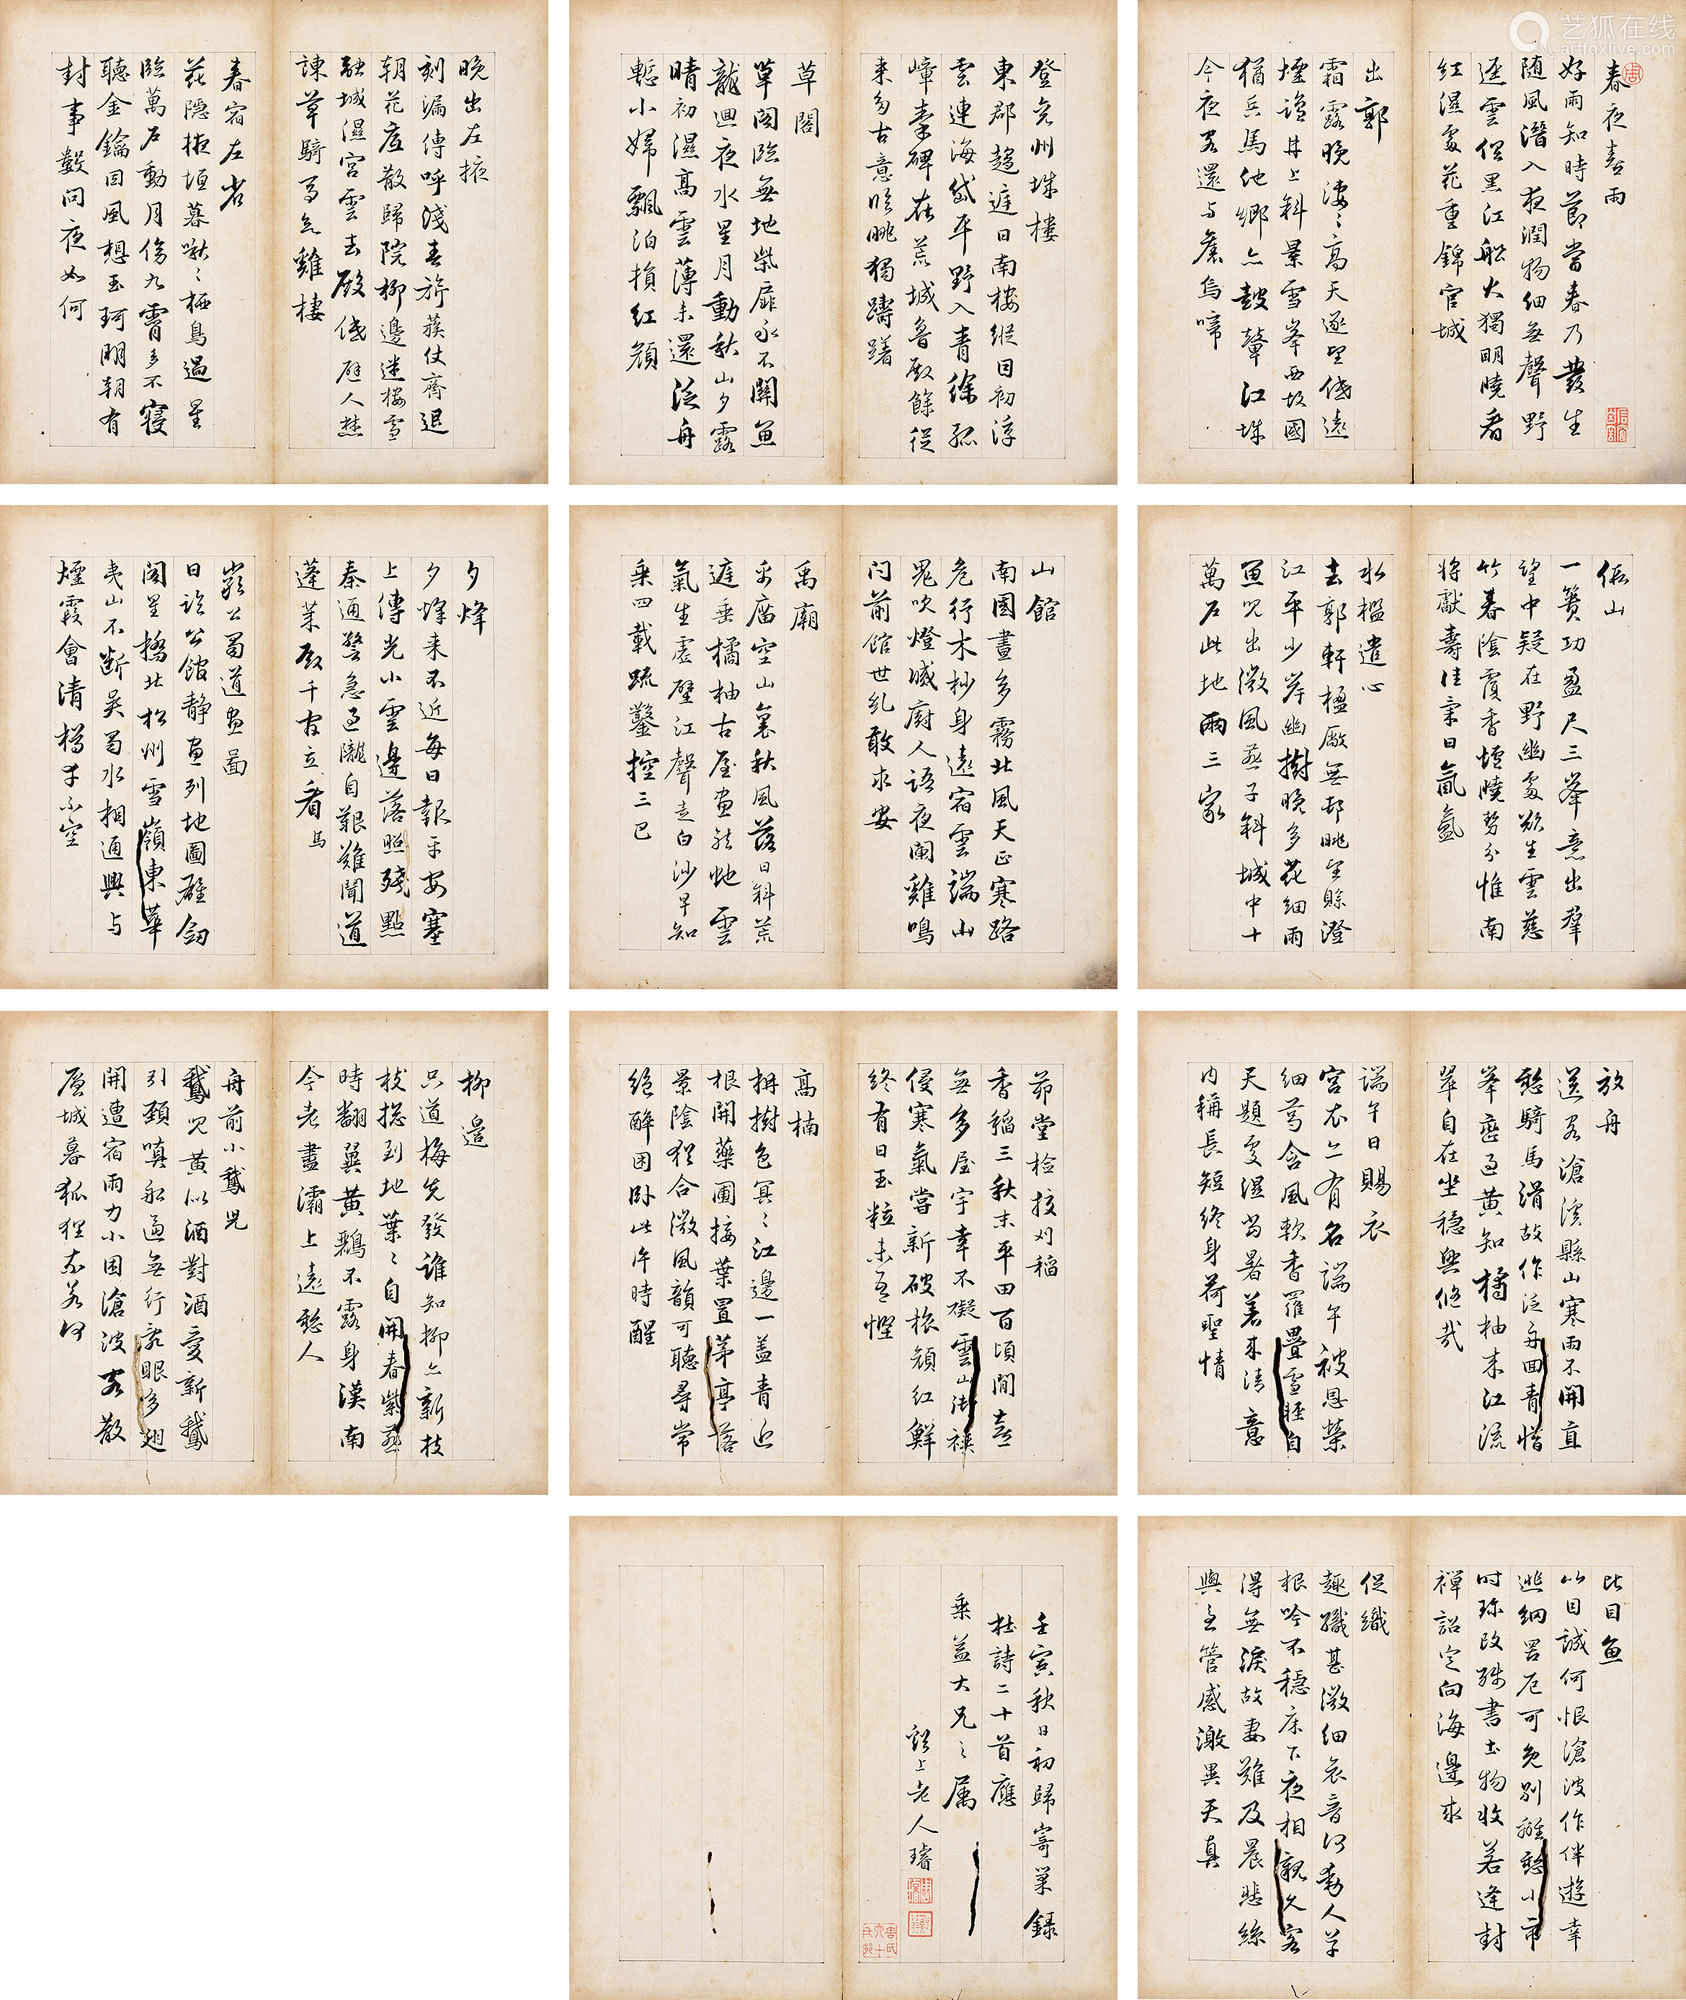 艺狐在线
artfoxlive.com
春夜喜雨
好雨知時節當春乃發生
随風潛入夜潤物细無聲野
逕雲俱黑江船火獨明曉看
紅濕處花重錦官城
出郭
霜露晚淒〻高天逐望低遠
煙鹽井上斜景雪峯西故國
猶兵馬他鄉亦鼓鼙江城
今夜客還与舊烏啼
登兖州城樓
東郡趨庭日南樓縱目初浮
雲連海岱平野入青徐孤
嶂秦碑在荒城魯殿餘從
来多古意臨眺獨躊躇
草閣
草閣臨無地柴扉永不關魚
龍迴夜水星月動秋山夕露
晴初濕高雲薄未還泛舟
慙小婦飄泊損紅顔
晚出左掖
刻漏傳呼淺春旂蔟仗齊退
朝花底散歸院柳邊迷樓雪
融城濕宮雲去殿低避人焚
諫草騎馬欲雞棲
春宿左省
花隱掖垣暮啾〻栖鳥過星
臨萬户動月傍九霄多不寝
聽金鑰因風想玉珂明朝有
封事數问夜如何
假山
一簣功盈尺三峯意出羣
望中疑在野幽處欲生雲慈
竹春陰覆香爐曉势分惟南
将獻壽佳氣日氤氲
水檻遣心
去郭軒楹敞無邨眺望賒澄
江平少岸幽樹晚多花细雨
魚兒出微風燕子斜城中十
萬户此地兩三家
山館
南國晝多霧北風天正寒路
危行木杪身遠宿雲端山
鬼吹燈滅廚人语夜闌雞鳴
问前館世乱敢求安
禹廟
禹廟空山裏秋風落日斜荒
庭垂橘柚古屋画龍虵雲
氣生虚壁江聲走白沙早知
乘四載疏鑿控三巴
夕烽
夕烽来不近每日報平安塞
上傳光小雲邊落照殘點
秦通警急過隴自艱難聞道
蓬莱殿千門立看馬
嚴公蜀道画圖
日临公館静画列地圖雄劒
阁星橋北松州雪嶺東華
夷山不断吴蜀水相通興与
煙霞會清樽幸不空
放舟
送客滄溪縣山寒雨不開直
愁騎馬滑故作泛舟回青惜
峯巒過黄知橘柚来江流
翠自在坐穩興悠哉
端午日賜衣
宫衣亦有名端午被恩榮
细葛含風軟香羅疊雪輕自
天題處濕当暑著来清意
内稱長短終身荷聖情
茆堂检挍刈稲
香稲三秋末平田百頃間喜
無多屋宇幸不礙雲山御裌
侵寒氣嘗新破旅顔紅鮮
終有日玉粒未吾慳
高楠
楠樹色冥〻江邊一盖青近
根開藥圃接葉置茅亭落
景陰猶合微風韻可聽尋常
絕醉困卧此片時醒
柳邊
只道梅先發誰知柳亦新枝
枝搃到地葉〻自開春紫燕
時翻翼黄鸝不露身漢南
今老盡灞上遠愁人
舟前小鵝兒
鵝兒黄似酒對酒愛新鵝
引頸嗔船逼無行乱眼多翅
開遭宿雨力小困滄波客散
層城暮狐狸奈若何
比目魚
以目誠何恨滄波作伴遊幸
逃網罟厄可免別離愁小市
时珍改殊書土物收若逢封
禪詔定向海邊求
促織
趣織甚微细哀音何動人草
根吟不穩床下夜相親久客
得無淚故妻難及晨悲絲
與急管感激異天真
壬寅秋日初歸寄巢錄
杜詩二十首應
乘益大兄之属
谿上老人璿